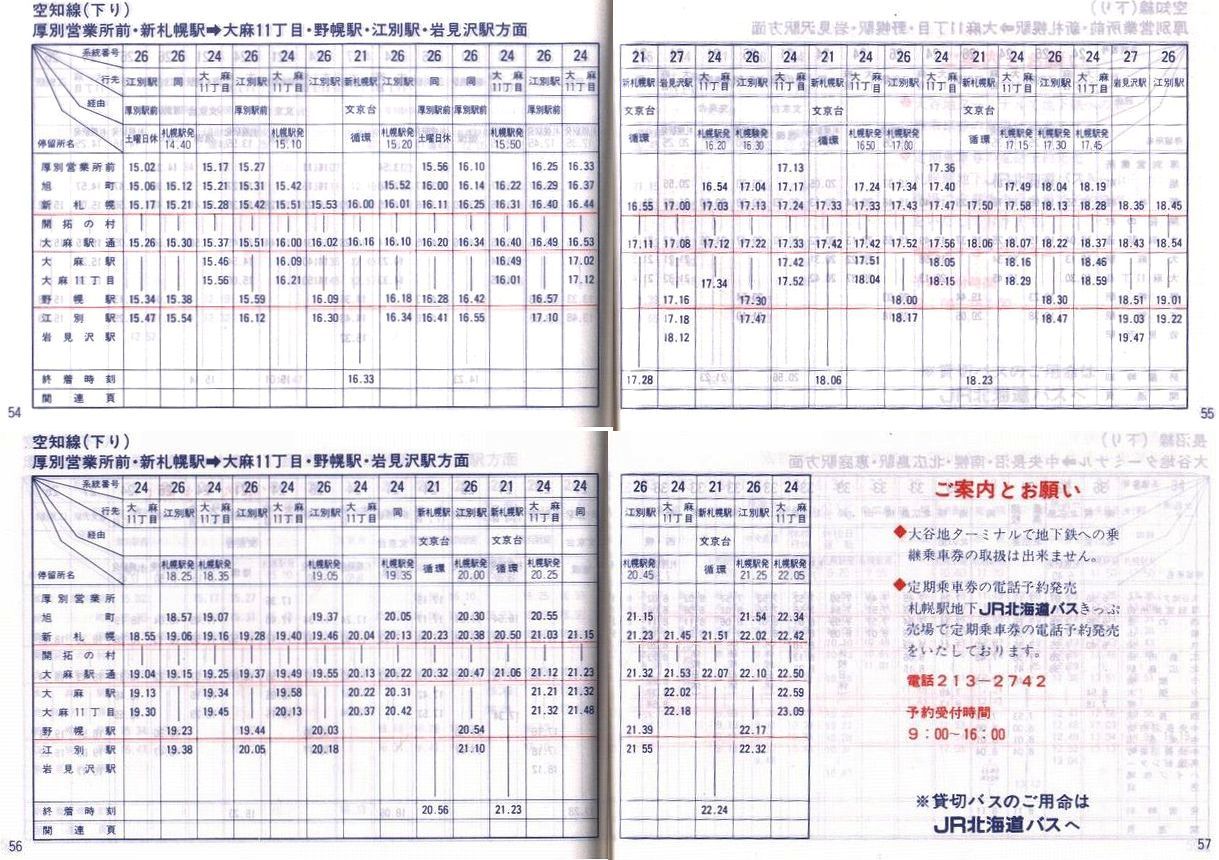 空知線(下り)
厚別営業所前・新札幌駅➡大麻11丁目・野幌駅・江別駅・岩見沢駅方面
系統番号 26 26 24 26 24 26 21 26 26 26 24 26 24
行先 江別駅 同 大麻11丁目 江別駅 大麻11丁目 江別駅 新札幌駅 江別駅 同 同 大麻11丁目 江別駅 大麻11丁目
経由 厚別駅前 厚別駅前 文京台 厚別駅前 厚別駅前 厚別駅前
停留所名 土曜日休 札幌駅発14.40 札幌駅発15.10 循環 札幌駅発15.20 土曜日休 札幌駅発15.50
厚別営業所前 15.02 15.17 15.27 15.56 16.10 16.25 16.33
旭町 15.06 15.12 15.21 15.31 15.42 15.52 16.00 16.14 16.22 16.29 16.37
新札幌 15.17 15.21 15.28 15.42 15.51 15.53 16.00 16.01 16.11 16.25 16.31 16.40 16.44
開拓の村
大麻駅通 15.26 15.30 15.37 15.51 16.00 16.02 16.16 16.10 16.20 16.34 16.40 16.49 16.53
大麻駅 15.46 16.09 16.49 17.02
大麻11丁目 15.56 16.21 16.01 17.12
野幌駅 15.34 15.38 15.59 16.09 16.18 16.28 16.42 16.57
江別駅 15.47 15.54 16.12 16.30 16.34 16.41 16.55 17.10
岩見沢駅
終着時刻 16.33
関連頁
54
21 27 24 26 24 21 24 26 24 21 24 26 24 27 26
新札幌駅 岩見沢駅 大麻11丁目 江別駅 大麻11丁目 新札幌駅 大麻11丁目 江別駅 大麻11丁目 新札幌駅 大麻11丁目 江別駅 大麻11丁目 岩見沢駅 江別駅
文京台 文京台 文京台
循環 札幌駅発16.20 札幌駅発16.30 循環 札幌駅発16.50 札幌駅発17.00 循環 札幌駅発17.15 札幌駅発17.30 札幌駅発17.45
17.13 17.36
16.54 17.04 17.17 17.24 17.34 17.40 17.49 18.04 18.19
16.55 17.00 17.03 17.13 17.24 17.33 17.33 17.43 17.47 17.50 17.58 18.13 18.28 18.35 18.45
17.11 17.08 17.12 17.22 17.33 17.42 17.42 17.52 17.56 18.06 18.07 18.22 18.37 18.43 18.54
17.42 17.51 18.05 18.16 18.46
17.34 17.52 18.04 18.15 18.29 18.59
17.16 17.30 18.00 18.30 18.51 19.01
17.18 17.47 18.17 18.47 19.03 19.22
18.12 19.47
17.28 18.06 18.23
55
空知線(下り)
厚別営業所前・新札幌駅➡大麻11丁目・野幌駅・岩見沢駅方面
系統番号 24 26 24 26 24 26 24 24 21 26 21 24 24
行先 大麻11丁目 江別駅 大麻11丁目 江別駅 大麻11丁目 江別駅 大麻11丁目 同 新札幌駅 江別駅 新札幌駅 大麻11丁目 同
経由 文京台 文京台
停留所名 札幌駅発18.25 札幌駅発18.35 札幌駅発19.05 札幌駅発19.35 循環 札幌駅発20.00 循環 札幌駅発20.25
厚別営業所
旭町 18.57 19.07 19.37 20.05 20.30 20.55
新札幌 18.55 19.06 19.16 19.28 19.40 19.46 20.04 20.13 20.23 20.38 20.50 21.03 21.15
開拓の村
大麻駅通 19.04 19.15 19.25 19.37 19.49 19.55 20.13 20.22 20.32 20.47 21.06 21.12 21.23
大麻駅 19.13 19.34 19.58 20.22 20.31 21.21 21.32
大麻11丁目 19.30 19.45 20.13 20.37 20.42 21.32 21.48
野幌駅 19.23 19.44 20.03 20.54
江別駅 19.38 20.05 20.18 21.10
岩見沢駅
終着時刻 20.56 21.23
関連頁
56
26 24 21 26 24
江別駅 大麻11丁目 新札幌駅 江別駅 大麻11丁目
文京台
札幌駅発20.45 循環 札幌駅発21.25 札幌駅発22.05
21.15 21.54 22.34
21.23 21.45 21.51 22.02 22.42
21.32 21.53 22.07 22.10 22.50
22.02 22.59
22.18 23.09
21.39 22.17
21 55 22.32
22.24
ご案内とお願い
◆大谷地ターミナルで地下鉄への乗
継乗車券の取扱は出来ません。
◆定期乗車券の電話予約発売
札幌駅地下JR北海道バスきっぷ
売場で定期乗車券の電話予約発売
をいたしております。
電話213−2742
予約受付時間
9:00〜16:00
※貸切バスのご用命は
JR北海道バスへ
57